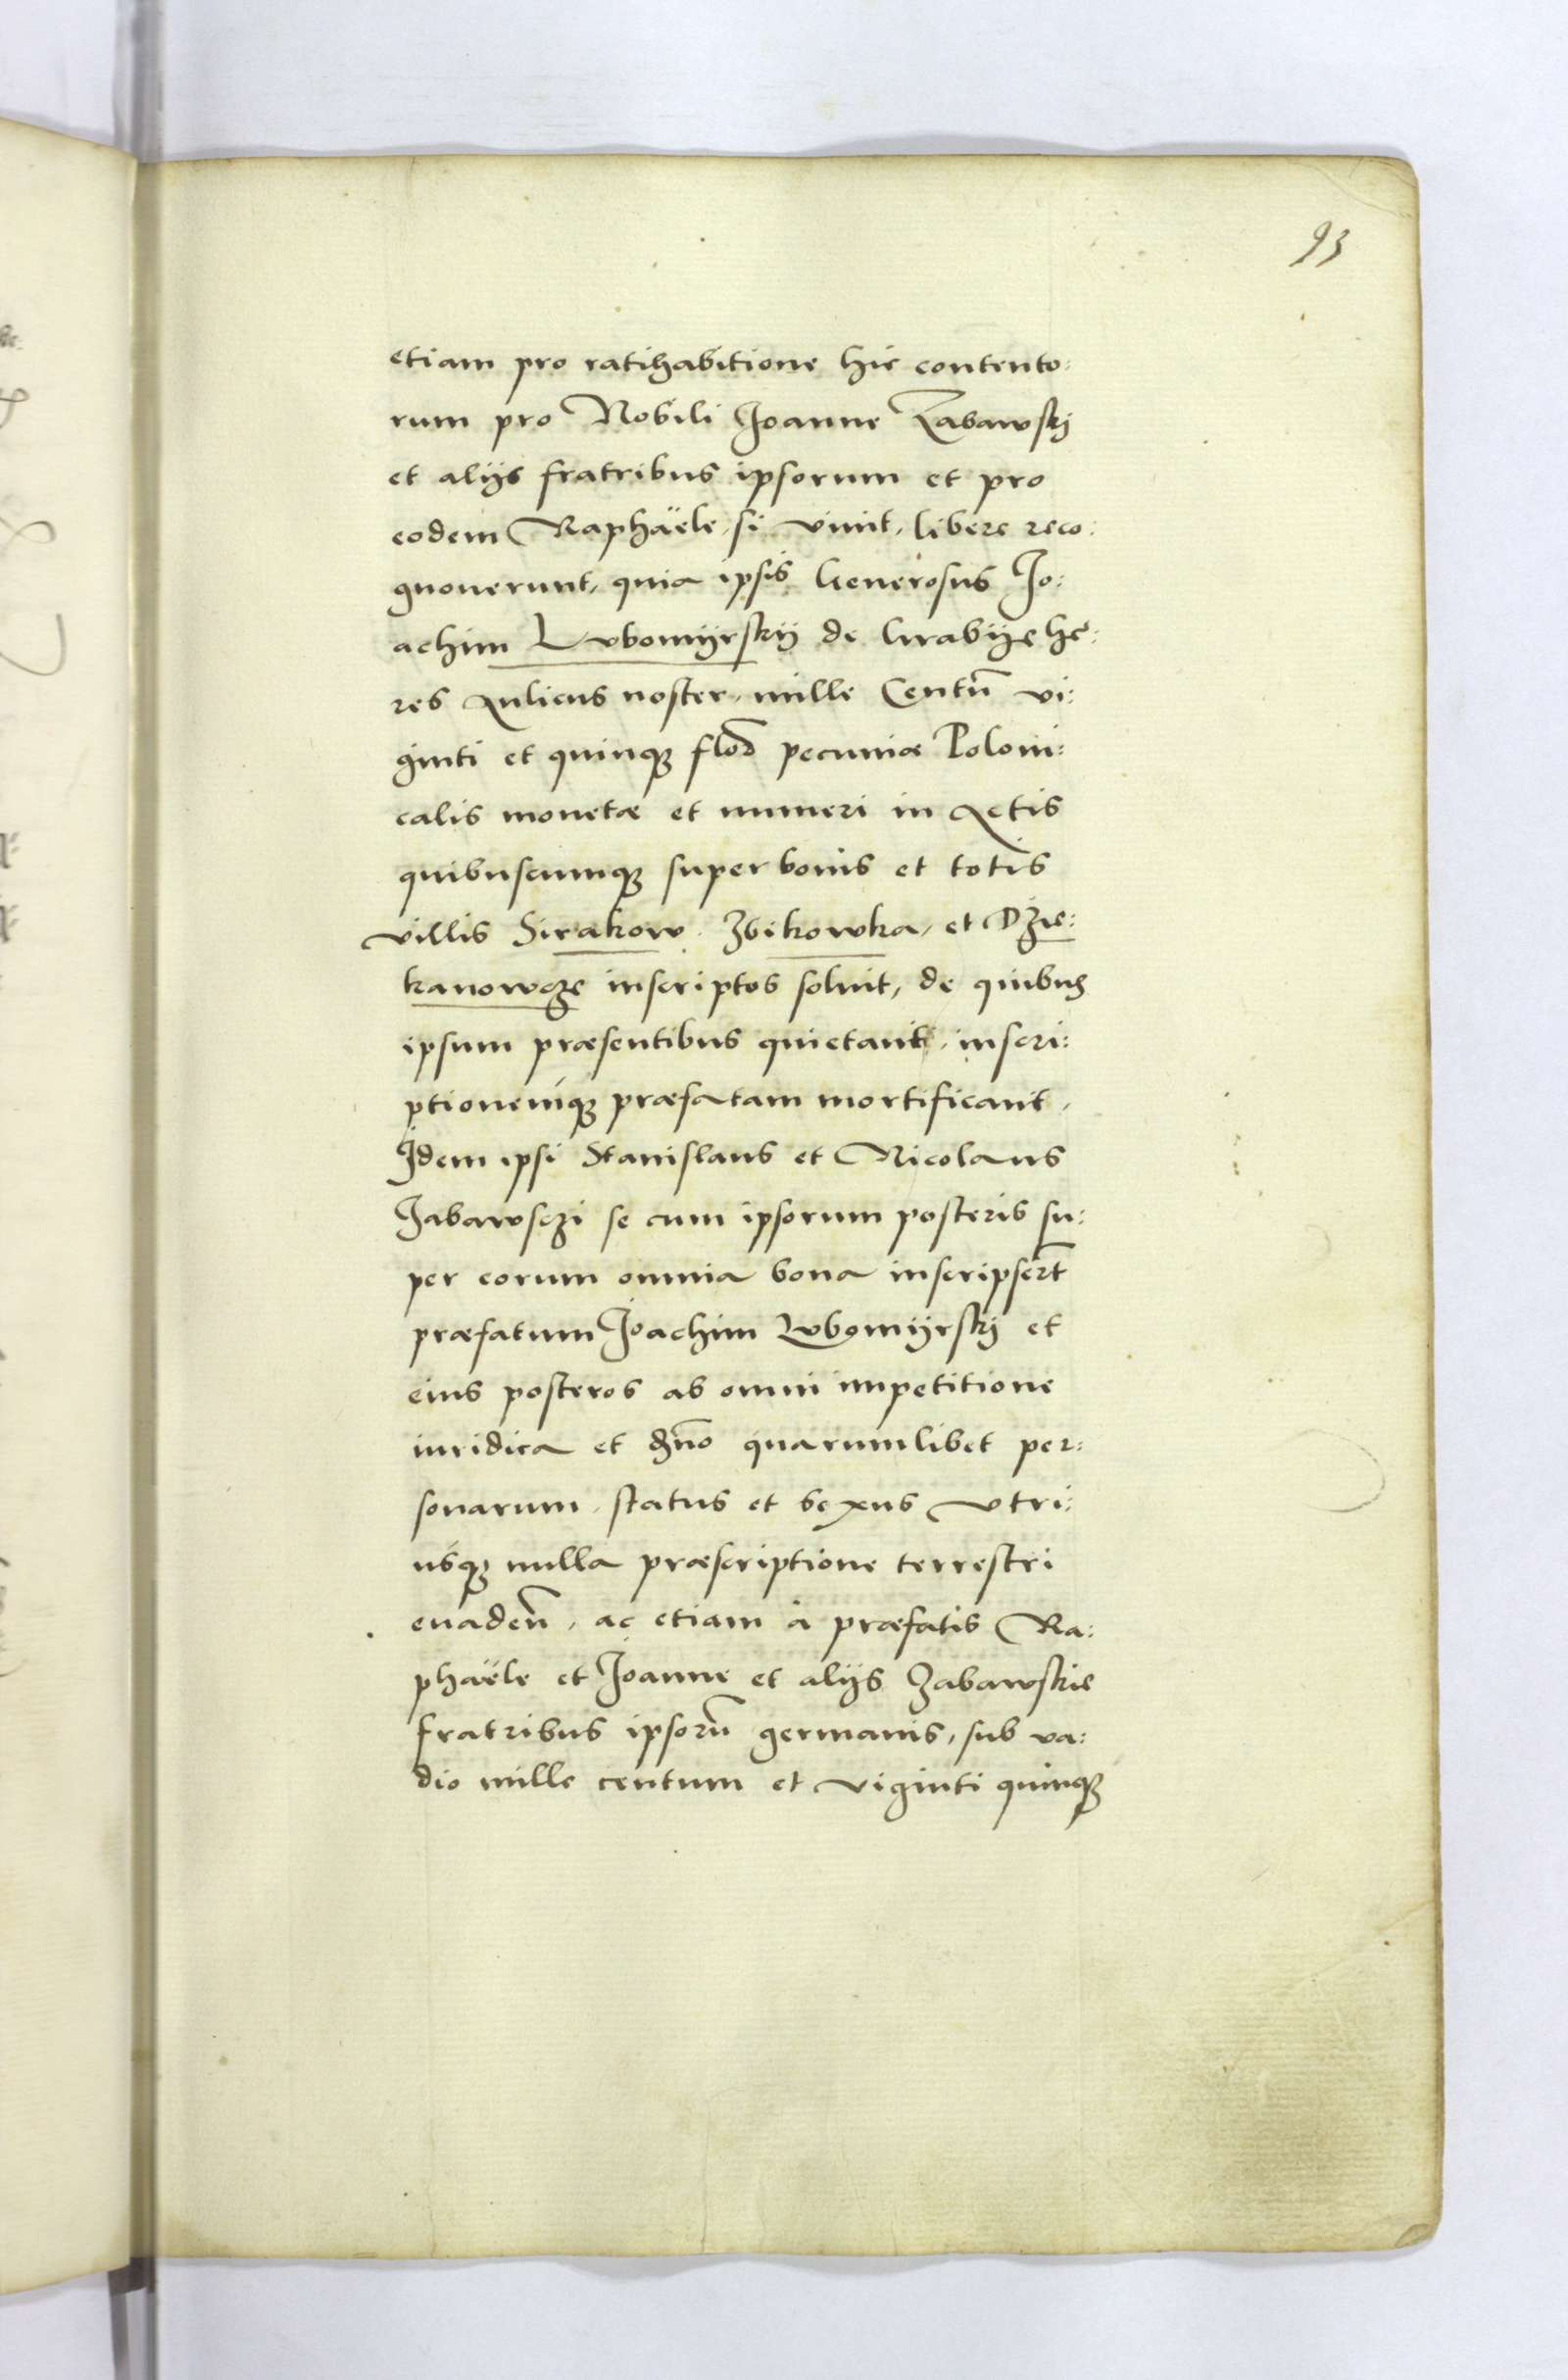 93
etiam pro ratihabitione hic contento:
rum pro Nobili Joanne Zabawskÿ
et alijs fratribus ipsorum et pro
eodem Raphaële, si viuit, libere reco:
gnouerunt, quia ipsis Generosus Jo:
achim Lvbomÿrskÿ de Grabÿe he:
res Aulicus noster, mille Centū vi:
ginti et quinqꝫ flō pecuniæ Poloni:
calis monetæ et numeri in Actis
quibuscumqꝫ super bonis et totis
villis Sirakow, Zbikowka, et Dzie:
kanowcze inscriptos soluit, de quibus
ipsum præsentibus quietant, inscri:
ptionemqꝫ præfatam mortificant,
Jdem ipsi Stanislaus et Nicolaus
Zabawsczi se cum ipsorum posteris su:
per eorum omnia bona inscripsert̄
præfatum Joachim Lvbomÿrskÿ et
eius posteros ab omni impetitione
iuridica et dm̄no quarumlibet per:
sonarum, status et sexus vtri:
usqꝫ nulla præscriptione terrestri
euadeñ, ac etiam à præfatis Ra:
phaële et Joanne et alijs Zabawskie
fratribus ipsorū germanis, sub va:
dio mille centum et viginti quinqꝫ